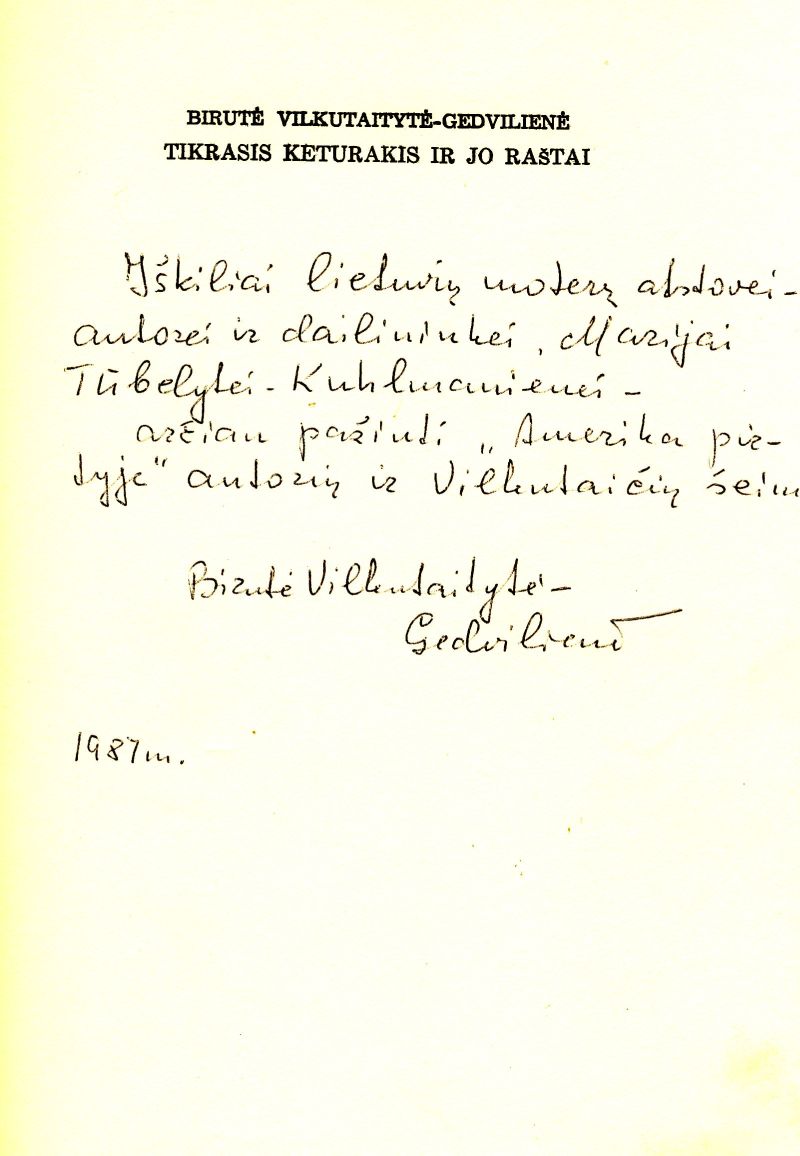 BIRUTĖ VILKUTAITYTĖ-GEDVILIENĖ
TIKRASIS KETURAKIS IR JO RAŠTAI
Iškiliai lietuvių moterų atstovei-
autorei ir dailininkei, Marijai
Tūbelytei-Kuhlmanienei –
arčiau pažinti „Amerika pir-
tyje" autorių ir Vilkutaičių šeim
Birutė Vilkutaitytė-
Gedvilienė
1987 m.